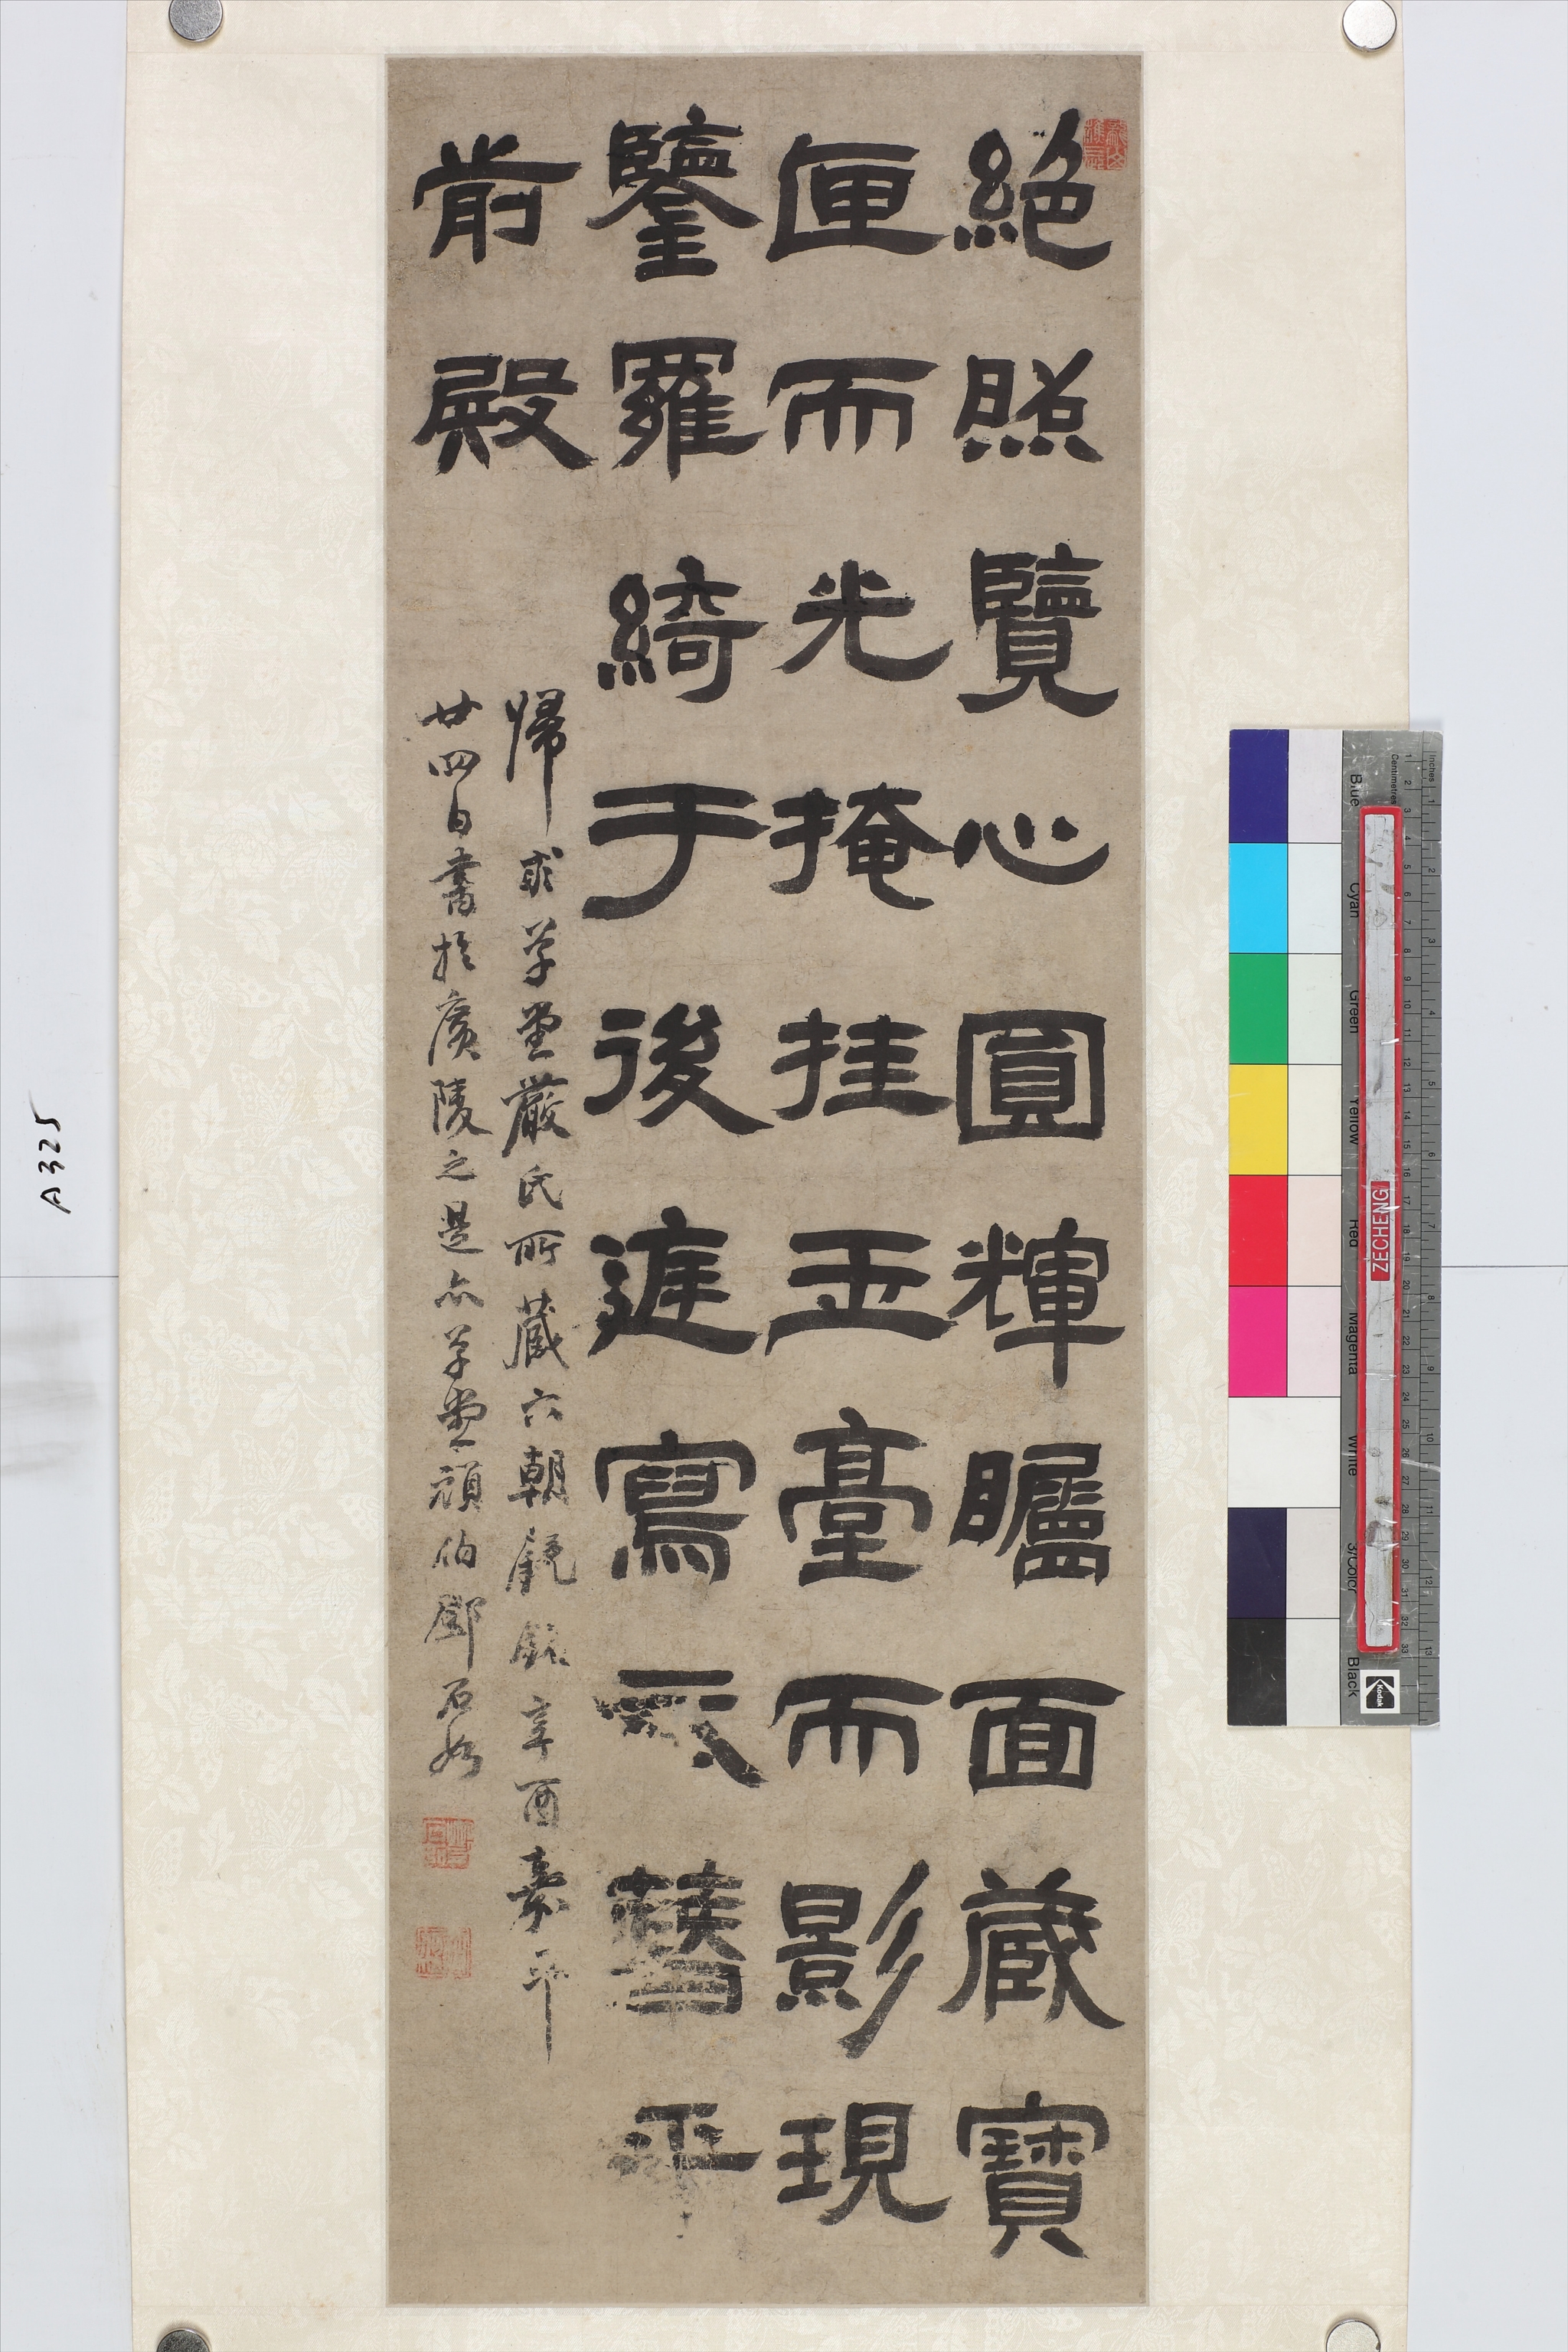 絕照覽心圓輝矚面藏寶
匣而光掩挂玉臺而影現
鑒羅綺于後庭寫衣簪乎
前殿
歸求草堂嚴氏所藏六朝鏡銘辛酉嘉平
廿四日書於廣陵之是亦草堂頑伯鄧石如
A325
Inches
Centimetres
Blue
Cyan
Green
Yellow
Red
Magenta
White
3/Color
Black
Kodak
ZECHENG